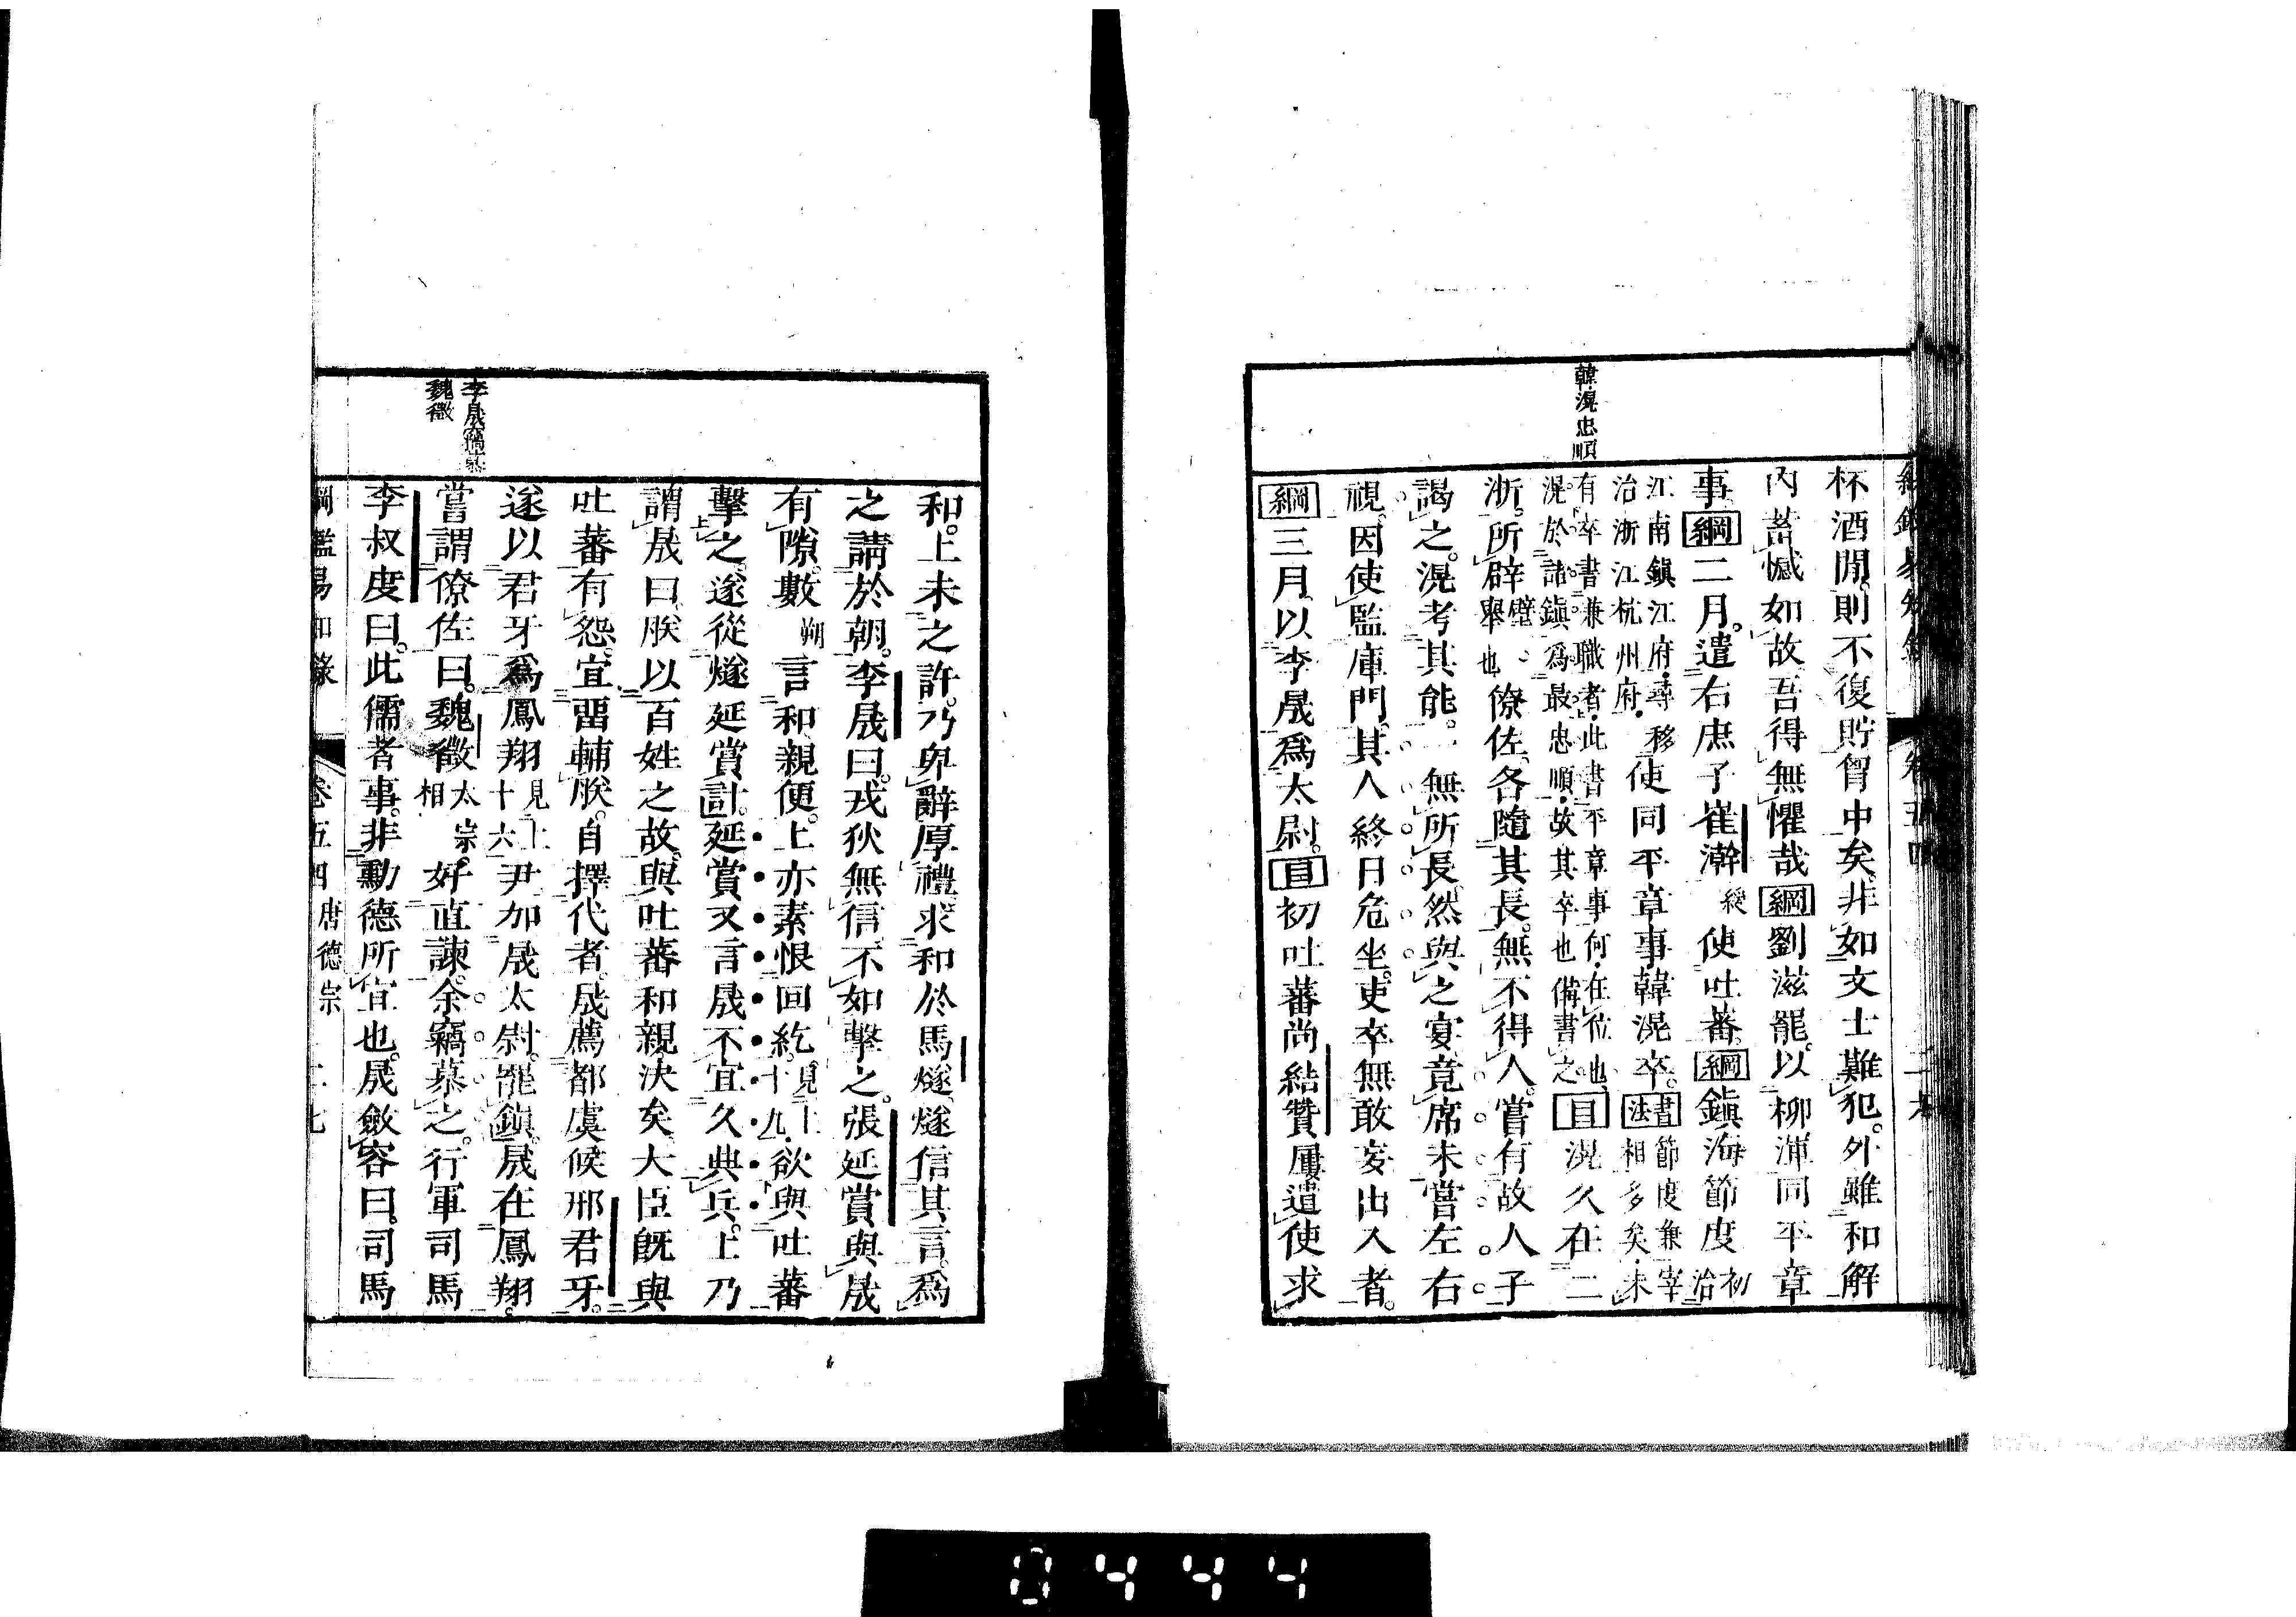 韓滉忠順
杯酒閒。則不復貯胷中矣。非如文士難犯。外雖和解
內蓄憾如故。吾得無懼哉綱劉滋罷。以柳渾同平章
事綱二月。遣右庶子崔澣緩使吐蕃。綱鎭海節度初治
江南鎭江府。尋移治浙江杭州府。使同平章事韓滉卒。書法節度兼宰相多矣。未
有卒書兼職者。此書平章事何。在位也滉於諸鎭爲最忠順。故其卒也備書之目滉久在二
浙。所辟璧、舉也僚佐。各隨其長。無不得人。嘗有故人子
謁之。滉考其能。一無所長。然與之宴。竟席未嘗左右
視。因使監庫門。其人終日危坐。吏卒無敢妄出入者。
綱三月。以李晟爲太尉。目初吐蕃尚結贊屢遣使求
李晟竊慕
魏徵
和。上未之許。乃卑辭厚禮。求和於馬燧。燧信其言。爲
之請於朝。李晟曰。戎狄無信。不如擊之。張延賞與晟
有隙。數朔言和親便。上亦素恨回紇。見上十九。欲與吐蕃
擊之。遂從燧延賞計。延賞又言晟不宜久典兵。上乃
謂晟曰。朕以百姓之故。與吐蕃和親決矣。大臣旣與
吐蕃有怨。宜畱輔朕。自擇代者。晟薦都虞候邢君牙。
遂以君牙爲鳳翔見上十六尹加晟太尉。罷鎭。晟在鳳翔。
嘗謂僚佐曰。魏徵太宗相好直諫。余竊慕之。行軍司馬
李叔度曰。此儒者事。非勳德所宜也。晟斂容曰。司馬
綱鑑易知錄 卷五四 唐德宗 二七